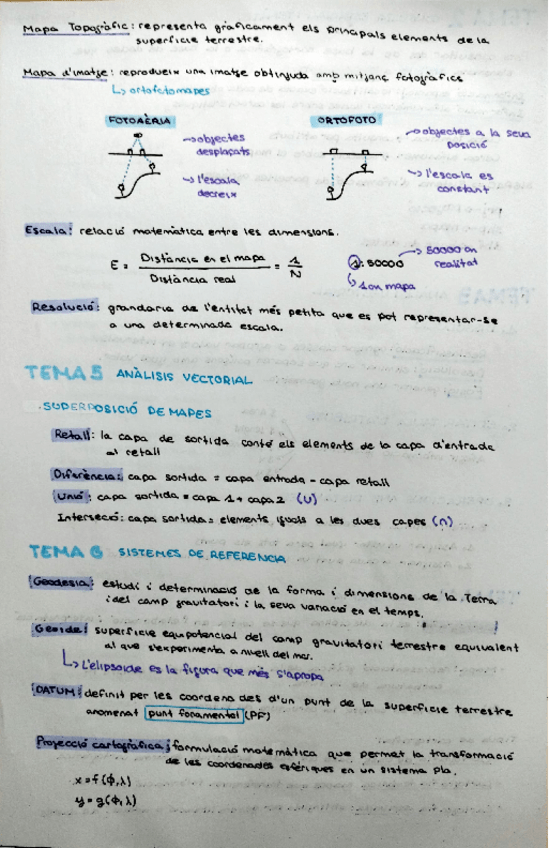 Mapa Topogràfic: representa gràficament els principals elements de la
superfície terrestre.
Mapa d'imatge: reprodueix una imatge obtinguda amb mitjanç fotogràfics
↳ ortofotomapes
FOTOAÈRIA
→ objectes
desplaçats
→ l'escala
decreix
ORTOFOTO
→ objectes a la seva
posició
→ l'escala es
constant
Escala: relació matemàtica entre les dimensions.
E = Distància en el mapa / Distància real = 1/N
1:50000
→ 50000 en
realitat
↳ 1 en mapa
Resolució: grandària de l'entitat més petita que es pot representar-se
a una determinada escala.
TEMA 5 ANÀLISIS VECTORIAL
SUPERPOSICIÓ DE MAPES
Retall: la capa de sortida conté els elements de la capa d'entrada
al retall
Diferència: capa sortida = capa entrada - capa retall
Unió: capa sortida = capa 1 + capa 2 (U)
Intersecció: capa sortida = elements iguals a les dues capes (∩)
TEMA 6 SISTEMES DE REFERENCIA
Geodesia: estudi i determinació de la forma i dimensions de la Terra
i del camp gravitatori i la seva variació en el temps.
Geoide: superfície equipotencial del camp gravitatori terrestre equivalent
al que s'experimenta a nivell del mar.
↳ L'elipsoide es la figura que més s'apropa
DATUM: definit per les coordenades d'un punt de la superfície terrestre
anomenat punt fonamental (PF)
Projecció cartogràfica: formulació matemàtica que permet la transformació
de les coordenades esfèriques en un sistema pla.
x = f(ϕ,λ)
y = g(ϕ,λ)